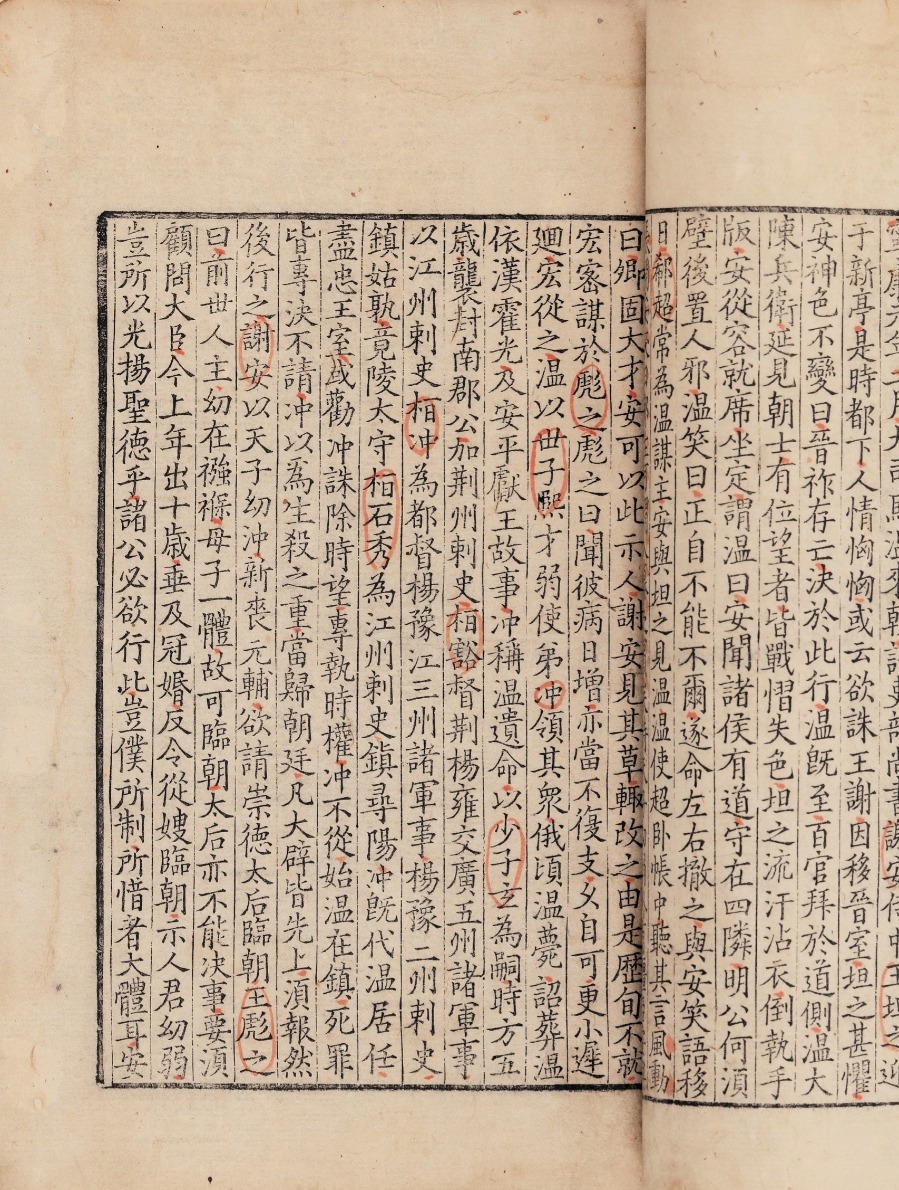 寧康元年二月大司馬溫來朝詔吏部尚書謝安侍中王坦之迎
于新亭是時都下人情恟恟或云欲誅王謝因移晉室坦之甚懼
安神色不變曰晉祚存亡決於此行溫旣至百官拜於道側溫大
陳兵衛延見朝士有位望者皆戰慴失色坦之流汗沾衣倒執手
版安從容就席坐定謂溫曰安聞諸侯有道守在四隣明公何湏
壁後置人邪溫笑曰正自不能不爾遂命左右撤之與安笑語移
日郗超常為溫謀主安與坦之見溫溫使超卧帳中聽其言風動
曰卿固大才安可以此示人謝安見其草輒改之由是歷旬不就
宏密謀於彪之彪之曰聞彼病日增亦當不復支乆自可更小遲
廻宏從之溫以世子熙才弱使弟沖領其衆俄頃溫薨詔葬溫
依漢霍光及安平獻王故事沖稱溫遺命以少子玄為嗣時方五
歲襲封南郡公加荆州刺史桓豁督荆楊雍交廣五州諸軍事
以江州刺史桓沖為都督楊豫江三州諸軍事楊豫二州刺史
鎮姑孰竟陵太守桓石秀為江州刺史鎮尋陽沖旣代溫居任
盡忠王室或勸沖誅除時望專執時權沖不從始溫在鎮死罪
皆專決不請沖以為生殺之重當歸朝廷凡大辟皆先上湏報然
後行之謝安以天子幼沖新喪元輔欲請崇德太后臨朝王彪之
曰前世人主幼在襁褓母子一體故可臨朝太后亦不能決事要湏
顧問大臣今上年出十歲垂及冠婚反令從嫂臨朝示人君幼弱
豈所以光揚聖德乎諸公必欲行此豈僕所制所惜者大體耳安